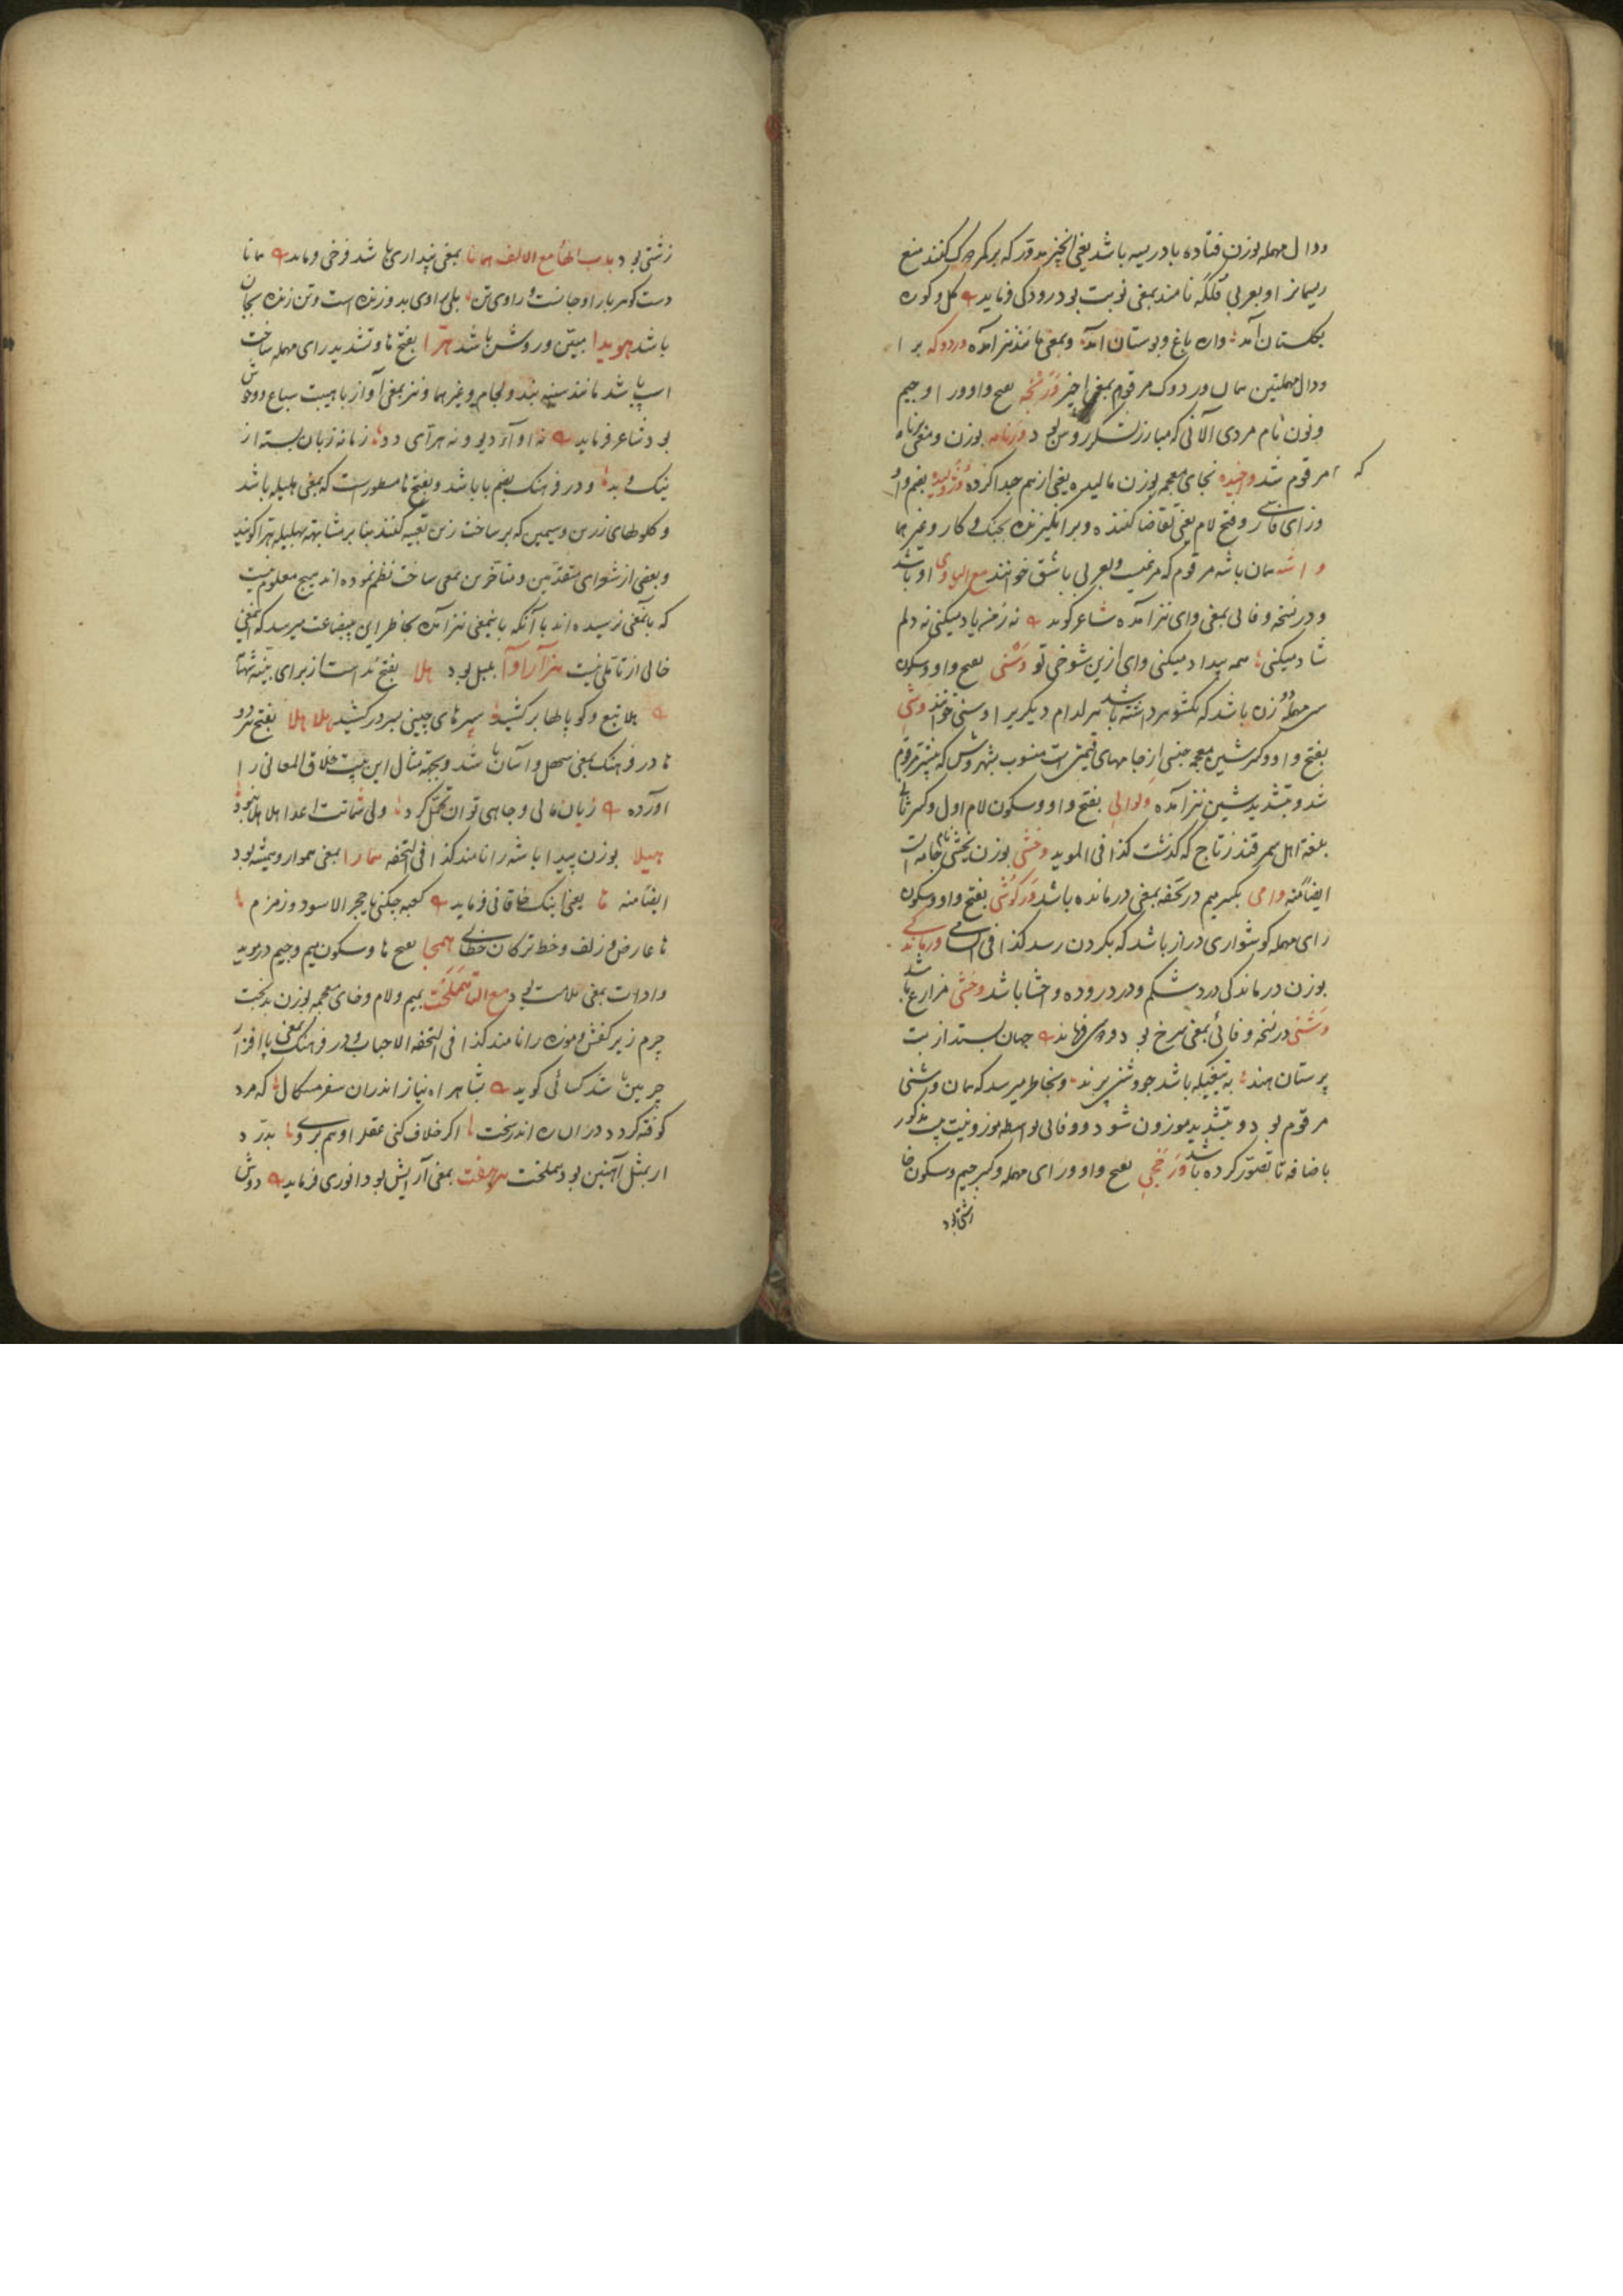 ودال مهمله بوزن فتاده بادریسه باشد یعنی انچیز مدور که بر کمر دوک کنند منع
ریسمانرا و بعربی فلکه نامند بمعنی نوبت بود رودکی فرماید گل دگر ره
بگلستان آمد واره باغ و بوستان آمد و بمعنی مانند نیز آمده وردوکه برا
ودال مهملتین همان وردوک مرقوم بمعنی اخیر
ونون نام مردی آلانی که مبارز لشکر روس بود ورنامه بوزن و معنی برنامه
که مرقوم شد وخیده بخای معجمه بوزن مالیده یعنی از هم جدا کرده وژولیده بضم واو
وزای فارسی و فتح لام یعنی تقاضا کننده و برانگیزنده بجنگ و کار و غیرهما
واشه همان باشه مرقوم که مرغیست و بعربی باشق خوانند مع الیا وی او باشد
ودر نسخه وفائی بمعنی وای نیز آمده شاعر گوید نه ز من یاد میکنی نه دلم
شاد میکنی همه بیداد میکنی وای ازین شوخی تو وسنی بفتح واو و سکون
سین مهمله دو زن باشد که یکشوهر داشته باشند هر کدام دیگریرا وسنی خوانند وشی
بفتح واو و کسر شین معجمه جنسی از جامهای قیمتی است منسوب بشهر وش که پیشتر مرقوم
شد و بتشدید شین نیز آمده ولوالی بفتح واو و سکون لام اول و کسر ثانی
بلغة اهل سمرقند زتاج که گذشت کذا فی الموید وخشی بوزن بخشی نام جامه است
ایضا منه وامی بکسر میم در تحفه بمعنی درمانده باشد ورگوشی بفتح واو و سکون
رای مهمله گوشواری دراز باشد که بگردن رسد کذا فی السامی ورماندگی
بوزن درماندگی درد شکم و درد روده و احشا باشد وخشی مزارع باشد
وشنی در نسخه وفائی بمعنی سرخ بود فردوسی فرماید جهان بستد از بت
پرستان هند به تیغیکه باشد چو وشنی پرند و بخاطر میرسد که همان وشی
مرقوم بود و بتشدید موزون شود و وفائی بواسطه موزونیت بیت مذکور
باضافه تا تصور کرده باشد ورخجی بفتح واو و رای مهمله و کسر جیم و سکون خا
زشتی بود
زشتی بود باب الهاء مع الالف همانا بمعنی پنداری باشد فرخی فرماید همانا
دست گوهر بار او جانست و رادی تن بلی رادی بدو زنده است و تن زنده بجان
باشد هویدا مبین و روشن باشد هرا بفتح ها و تشدید رای مهمله ساخت
اسپ باشد مانند سینه بند و لجام و غیرهما و نیز بمعنی آواز با هیبت سباع و وحوش
بود شاعر فرماید نه آواز دیو و نه هرای دد زمانه زبان بسته از
نیک و بد و در فرهنگ بضم ها باشد و بفتح ها مسطور است که بمعنی هلیله باشد
و گلوطهای زرین و سیمین که بر ساخت زین تعبیه کنند بنا بر مشابهت بهلیله هرا گویند
و بعضی از شعرای متقدمین و متاخرین بمعنی ساخت نظم نموده اند هیچ معلوم نیست
که بآنمعنی نرسیده اند با آنکه باینمعنی نیز آمده بخاطر این بیبضاعت میرسد که آنمعنی
خالی از تاملی نیست هزارآوا بلبل بود هلا بفتح ندا است از برای تنبیه شهنا
هلا تیغ و کوپالها برکشید سپرهای چینی بسر درکشید هلا هلا بفتح هر دو
ها در فرهنگ بمعنی سهل و آسان باشد و بجهة مثال این بیت خلاق المعانی را
آورده زیان مالی و جاهی توان تحمل کرد ولی شماتت اعدا هلا هلا نبود
هیلا بوزن پیدا باشه را نامند کذا فی التحفه همارا بمعنی هموار و همیشه بود
ایضا منه ها یعنی اینک خاقانی فرماید کعبه چکنی با حجر الاسود و زمزم
ها عارض و زلف و خط ترکان خطائی همجا بفتح ها و سکون میم و جیم در موید
وادات بمعنی ملامت بود مع التا هملخت بمیم و لام و خای معجمه بوزن بدبخت
چرم زیر کفش و موزه را نامند کذا فی التحفة الاحباب و در فرهنگ بمعنی پاافزار
چرمین باشد کسائی گوید بشاهراه نیاز اندران سفر مسگال که مرد
کوفته گردد دران ره اندر سخت اگر خلاف کنی عقل را و هم بروی بدرد
ار بمثل آهنین بود هملخت هرهفت بمعنی آرایش بود انوری فرماید دوش